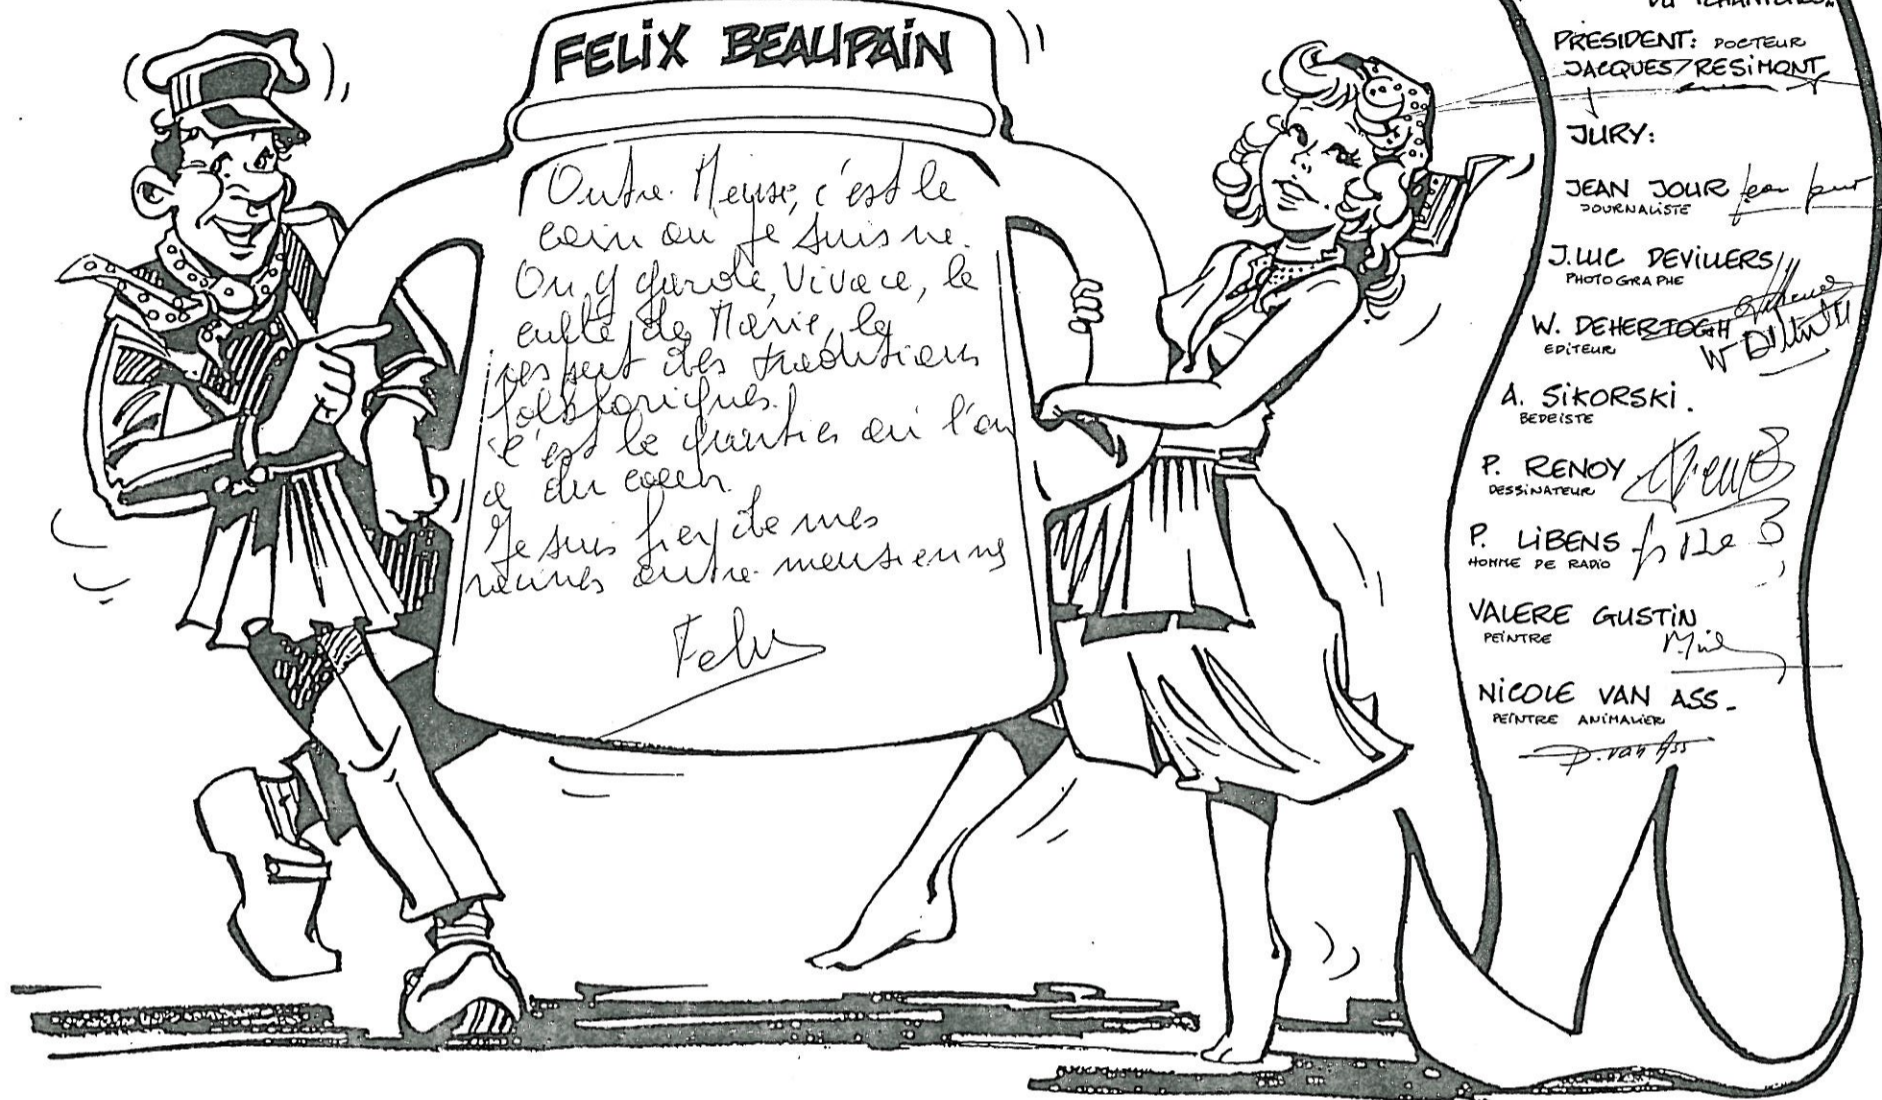 FELIX BEAUPAIN
Outre-Meuse, c'est le
coin où je suis né.
On y garde, vivace, le
culte de Marie, le
respect des traditions
folkloriques.
C'est le quartier où l'on
a du coeur.
Je suis fier de mes
racines outre-meusiennes
Felix
PRESIDENT: DOCTEUR
JACQUES RESIMONT
JURY:
JEAN JOUR
JOURNALISTE
J.LUC DEVILLERS
PHOTOGRAPHE
W. DEHERTOGH
EDITEUR
A. SIKORSKI.
BEDEISTE
P. RENOY
DESSINATEUR
P. LIBENS
HOMME DE RADIO
VALERE GUSTIN
PEINTRE
NICOLE VAN ASS.
PEINTRE ANIMALIER